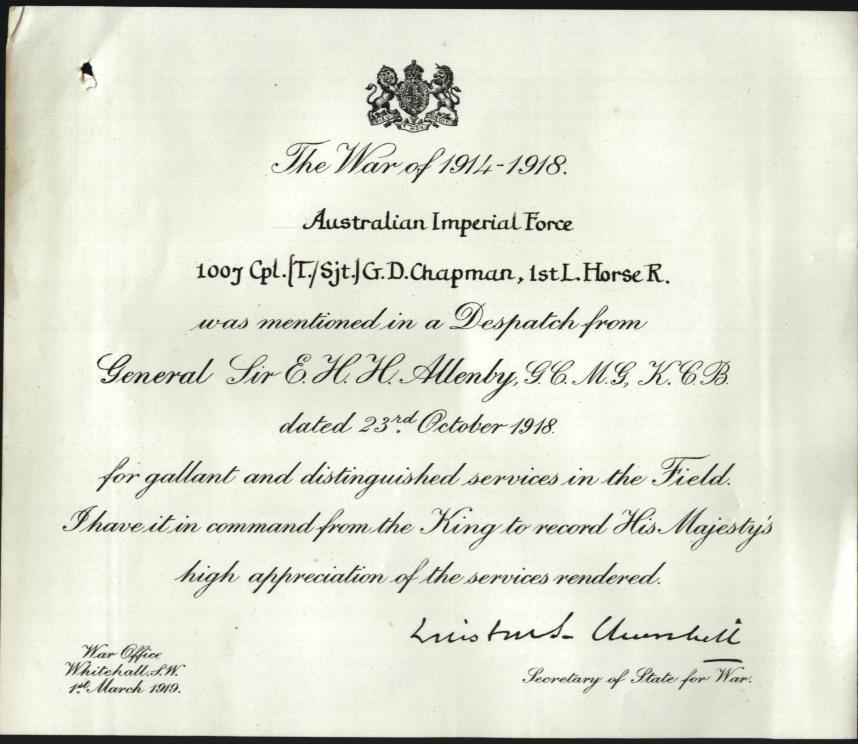 The War of 1914-1918.
Australian Imperial Force
1007 Cpl. [T./Sjt.] G. D. Chapman, 1st L. Horse R.
was mentioned in a Despatch from
General Sir E. H. H. Allenby, G.C.M.G, K.C.B.
dated 23rd October 1918.
for gallant and distinguished services in the Field.
I have it in command from the King to record His Majesty's
high appreciation of the services rendered.
Winston S. Churchill
War Office
Whitehall, S.W.
1st March 1919.
Secretary of State for War.